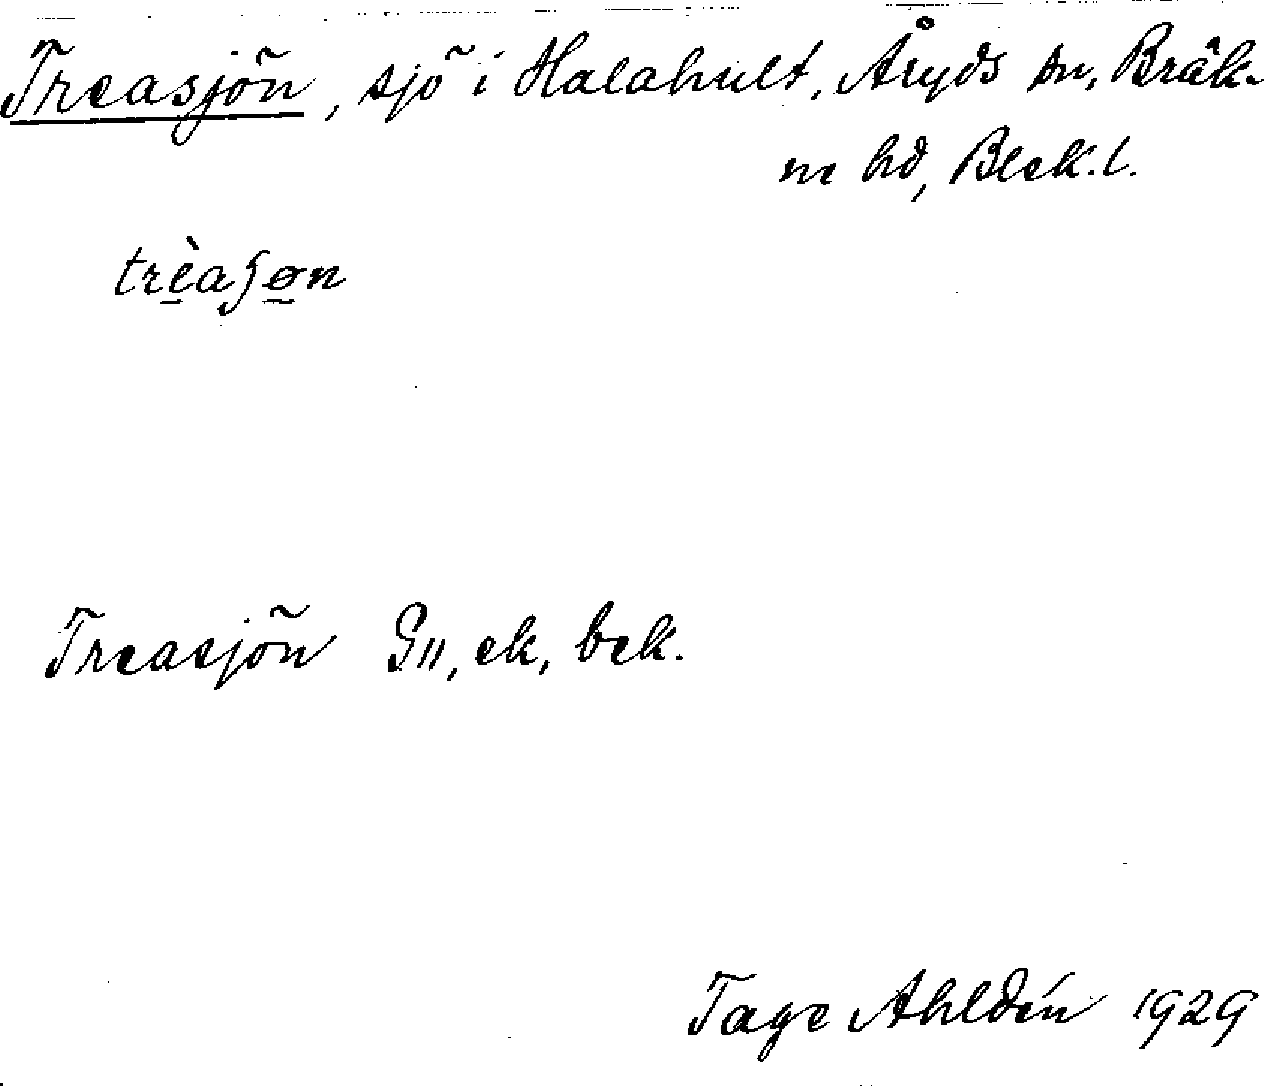 Treasjön, sjö i Halahult, Åryds sn, Bräk-
ne hd, Blek. l.
trèaʃøn
Treasjön G11, ek, bek.
Tage Ahldén 1929